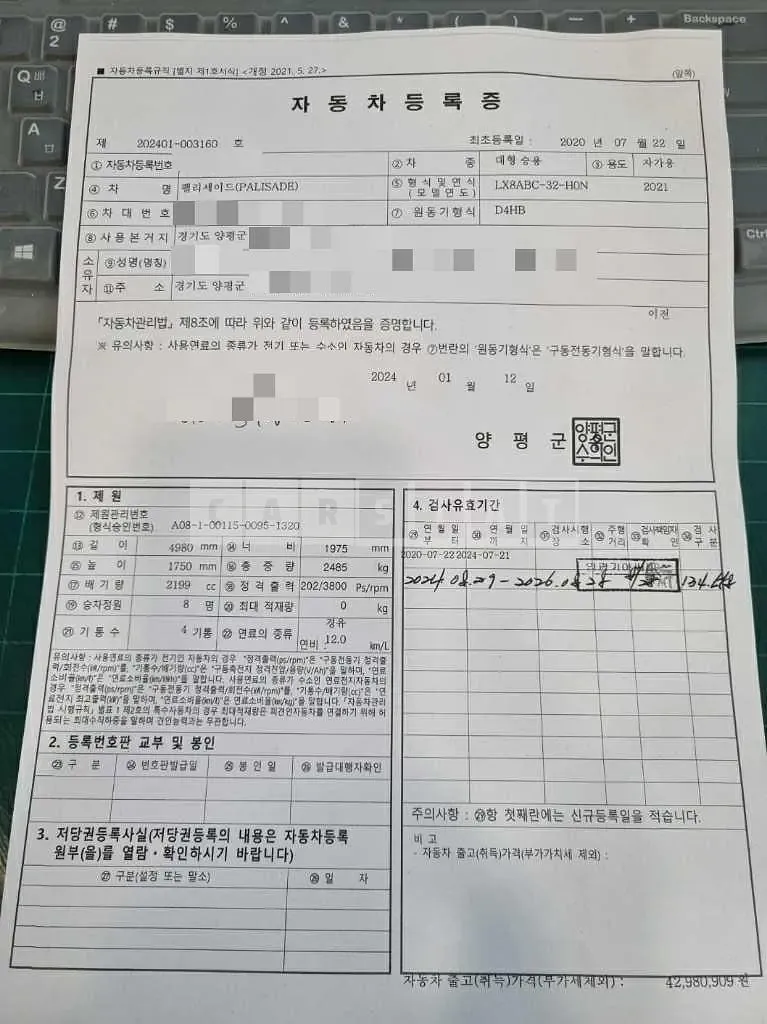 @
2
#
$
%
^
&
*
(
)
-
+
Backspace
Q ㅃ
ㅂ
A
ㅁ
Z
Ctrl
■ 자동차등록규칙 [별지 제1호서식] <개정 2021. 5. 27.>
(앞쪽)
자 동 차 등 록 증
제 202401-003160 호
최초등록일 : 2020 년 07 월 22 일
① 자동차등록번호
② 차 종 대형 승용 ③ 용도 자가용
④ 차 명 팰리세이드(PALISADE) ⑤ 형식 및 연식 (모델연도) LX8ABC-32-H0N 2021
⑥ 차 대 번 호 ⑦ 원동기형식 D4HB
⑧ 사용 본거지 경기도 양평군
소유자 ⑨성명(명칭)
⑪주 소 경기도 양평군
이전
「자동차관리법」 제8조에 따라 위와 같이 등록하였음을 증명합니다.
※ 유의사항 : 사용연료의 종류가 전기 또는 수소인 자동차의 경우 ⑦번란의 '원동기형식'은 '구동전동기형식'을 말합니다.
2024 년 01 월 12 일
양 평 군
1. 제 원
⑫ 제원관리번호 (형식승인번호) A08-1-00115-0095-1320
⑬ 길 이 4980 mm ⑭ 너 비 1975 mm
⑮ 높 이 1750 mm ⑯ 총 중 량 2485 kg
⑰ 배 기 량 2199 cc ⑱ 정격출력 202/3800 Ps/rpm
⑲ 승차정원 8 명 ⑳ 최대 적재량 0 kg
㉑ 기 통 수 4 기통 ㉒ 연료의 종류 경유 연비 : 12.0 km/L
유의사항 : 사용연료의 종류가 전기인 자동차의 경우 "정격출력(ps/rpm)"은 "구동전동기 정격출
력/회전수(㎾/rpm)"를, "기통수/배기량(cc)"은 "구동축전지 정격전압/용량(V/Ah)"을 말하며, "연료
소비율(㎞/ℓ)"은 "연료소비율(㎞/㎾h)"를 말합니다. 사용연료의 종류가 수소인 연료전지자동차의
경우: "정격출력(ps/rpm)"은 "구동전동기 정격출력/회전수(㎾/rpm)"를, "기통수/배기량(cc)"은 "연
료전지 최고출력(㎾)"을 말하며, "연료소비율(㎞/ℓ)"은 연료소비율(㎞/kg)"을 말합니다. 「자동차관리
법 시행규칙」 별표 1 제2호의 특수자동차의 경우 최대적재량은 피견인자동차를 연결하기 위해 허
용되는 최대수직하중을 말하며 견인능력과는 무관합니다.
2. 등록번호판 교부 및 봉인
㉓ 구 분 ㉔ 번호판발급일 ㉕ 봉 인 일 ㉖ 발급대행자확인
3. 저당권등록사실(저당권등록의 내용은 자동차등록
원부(을)를 열람ㆍ확인하시기 바랍니다)
㉗ 구분(설정 또는 말소) ㉘ 일 자
4. 검사유효기간
㉙ 연 월 일 부 터 ㉚ 연 월 일 까 지 ㉛ 검사시행 장 소 ㉜ 주행 거리 ㉝ 검사책임자 확 인 ㉞ 검 사 구 분
2020-07-22 2024-07-21
2024 08.29 - 2026.08.28
주의사항 : ㉙항 첫째란에는 신규등록일을 적습니다.
비 고
- 자동차 출고(취득)가격(부가가치세 제외) :
자동차 출고(취득)가격(부가세제외) : 42,980,909 원